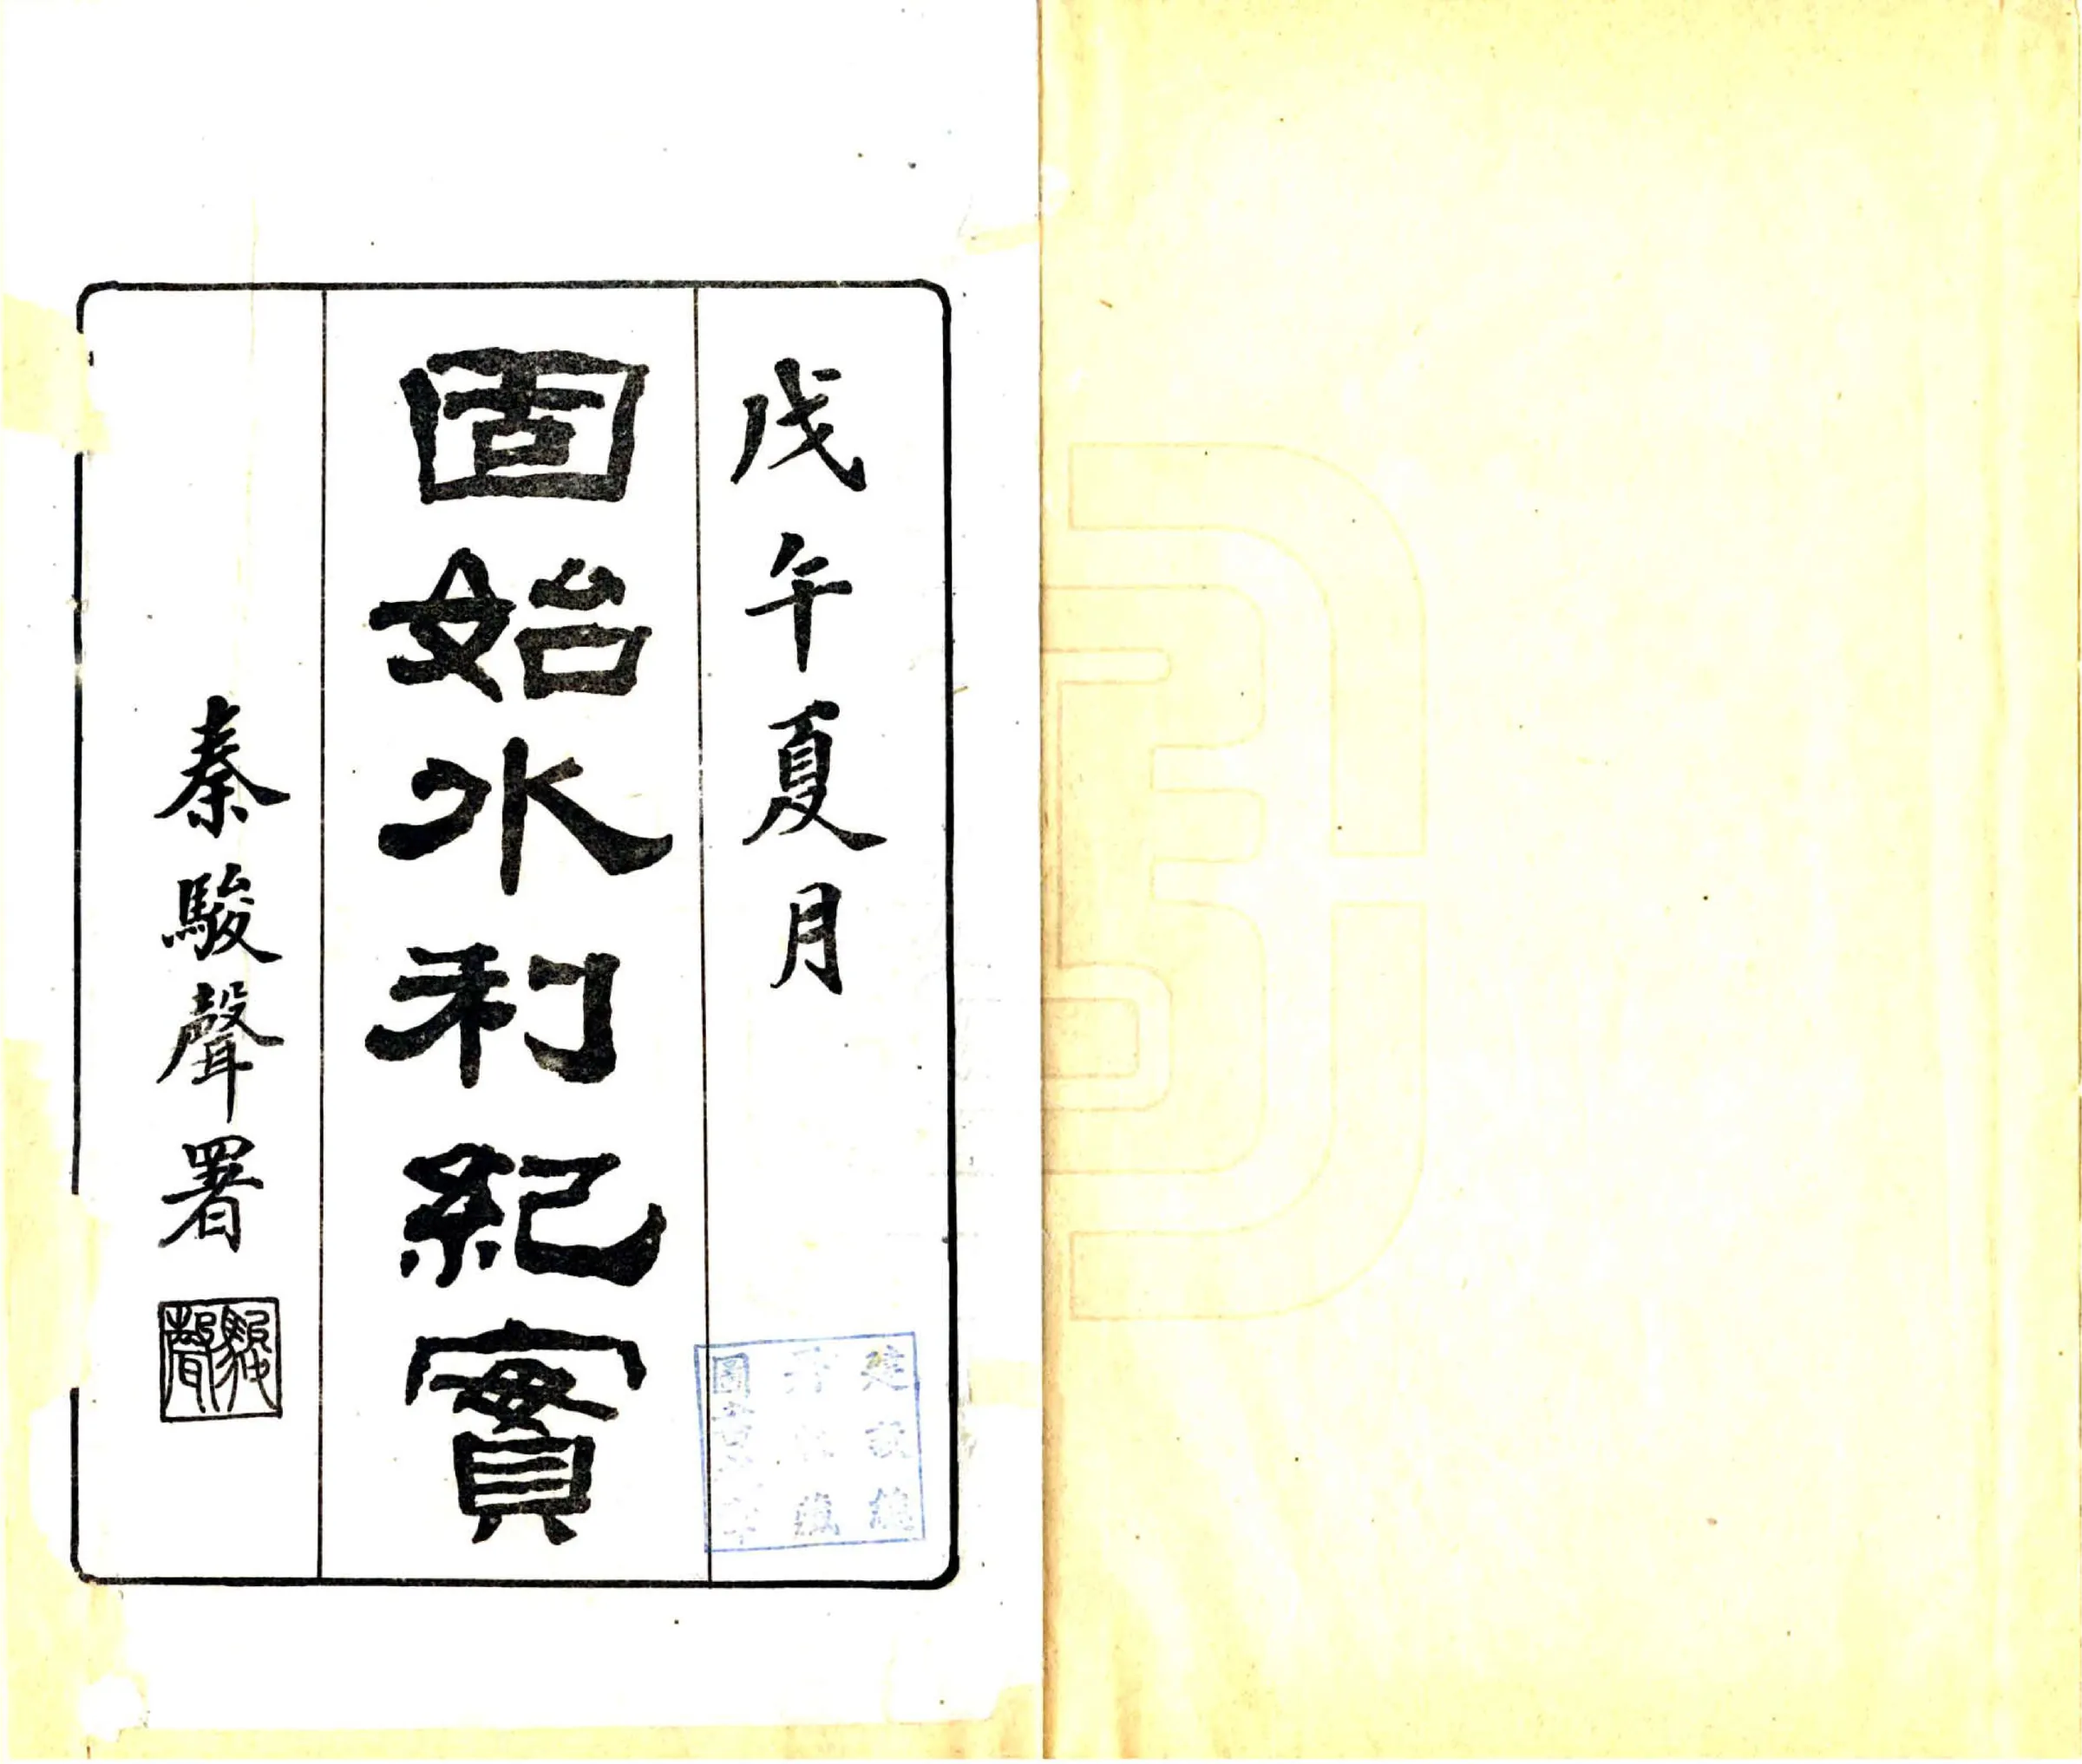 戊午夏月
固始水利紀實
秦駿聲署
駿聲